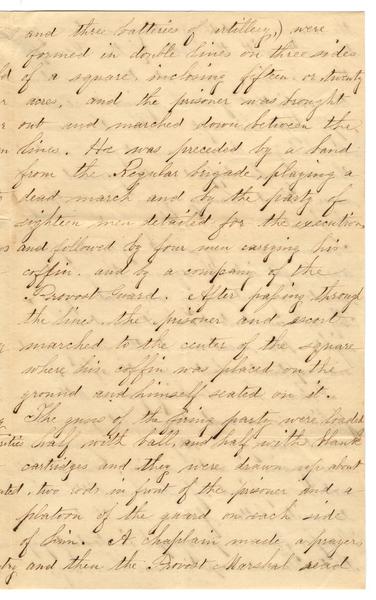 and three batteries of artillery,) were
formed in double lines on three sides
of a square inclosing fifteen or twenty
acres, and the prisoner was brought
out and marched down between the
lines. He was preceded by a band
from the Regular brigade, playing a
dead march and by the party of
eighteen men detailed for the execution,
and followed by four men carrying his
coffin and by a company of the
Provost Guard. After passing through
the line the prisoner and escort
marched to the center of the square
where his coffin was placed on the
ground and himself seated on it.
The guns of the firing party were loaded
half with ball, and half with blank
cartridges and they were drawn up about
two rods in front of the prisoner and a
platoon of the guard on each side
of him. A chaplain made a prayer,
and then the Provost Marshal read